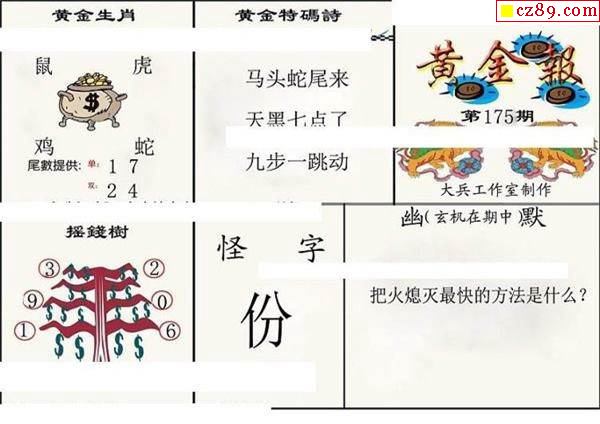 cz89.com
黄金生肖
鼠 虎
$
鸡 蛇
尾數提供: 单: 1 7
双: 2 4
黄金特碼詩
马头蛇尾来
天黑七点了
九步一跳动
黄金報
第175期
大兵工作室制作
摇錢樹
③ ②
⑨ ⓪
① ⑥
怪 字
份
幽(玄机在期中)默
把火熄灭最快的方法是什么?